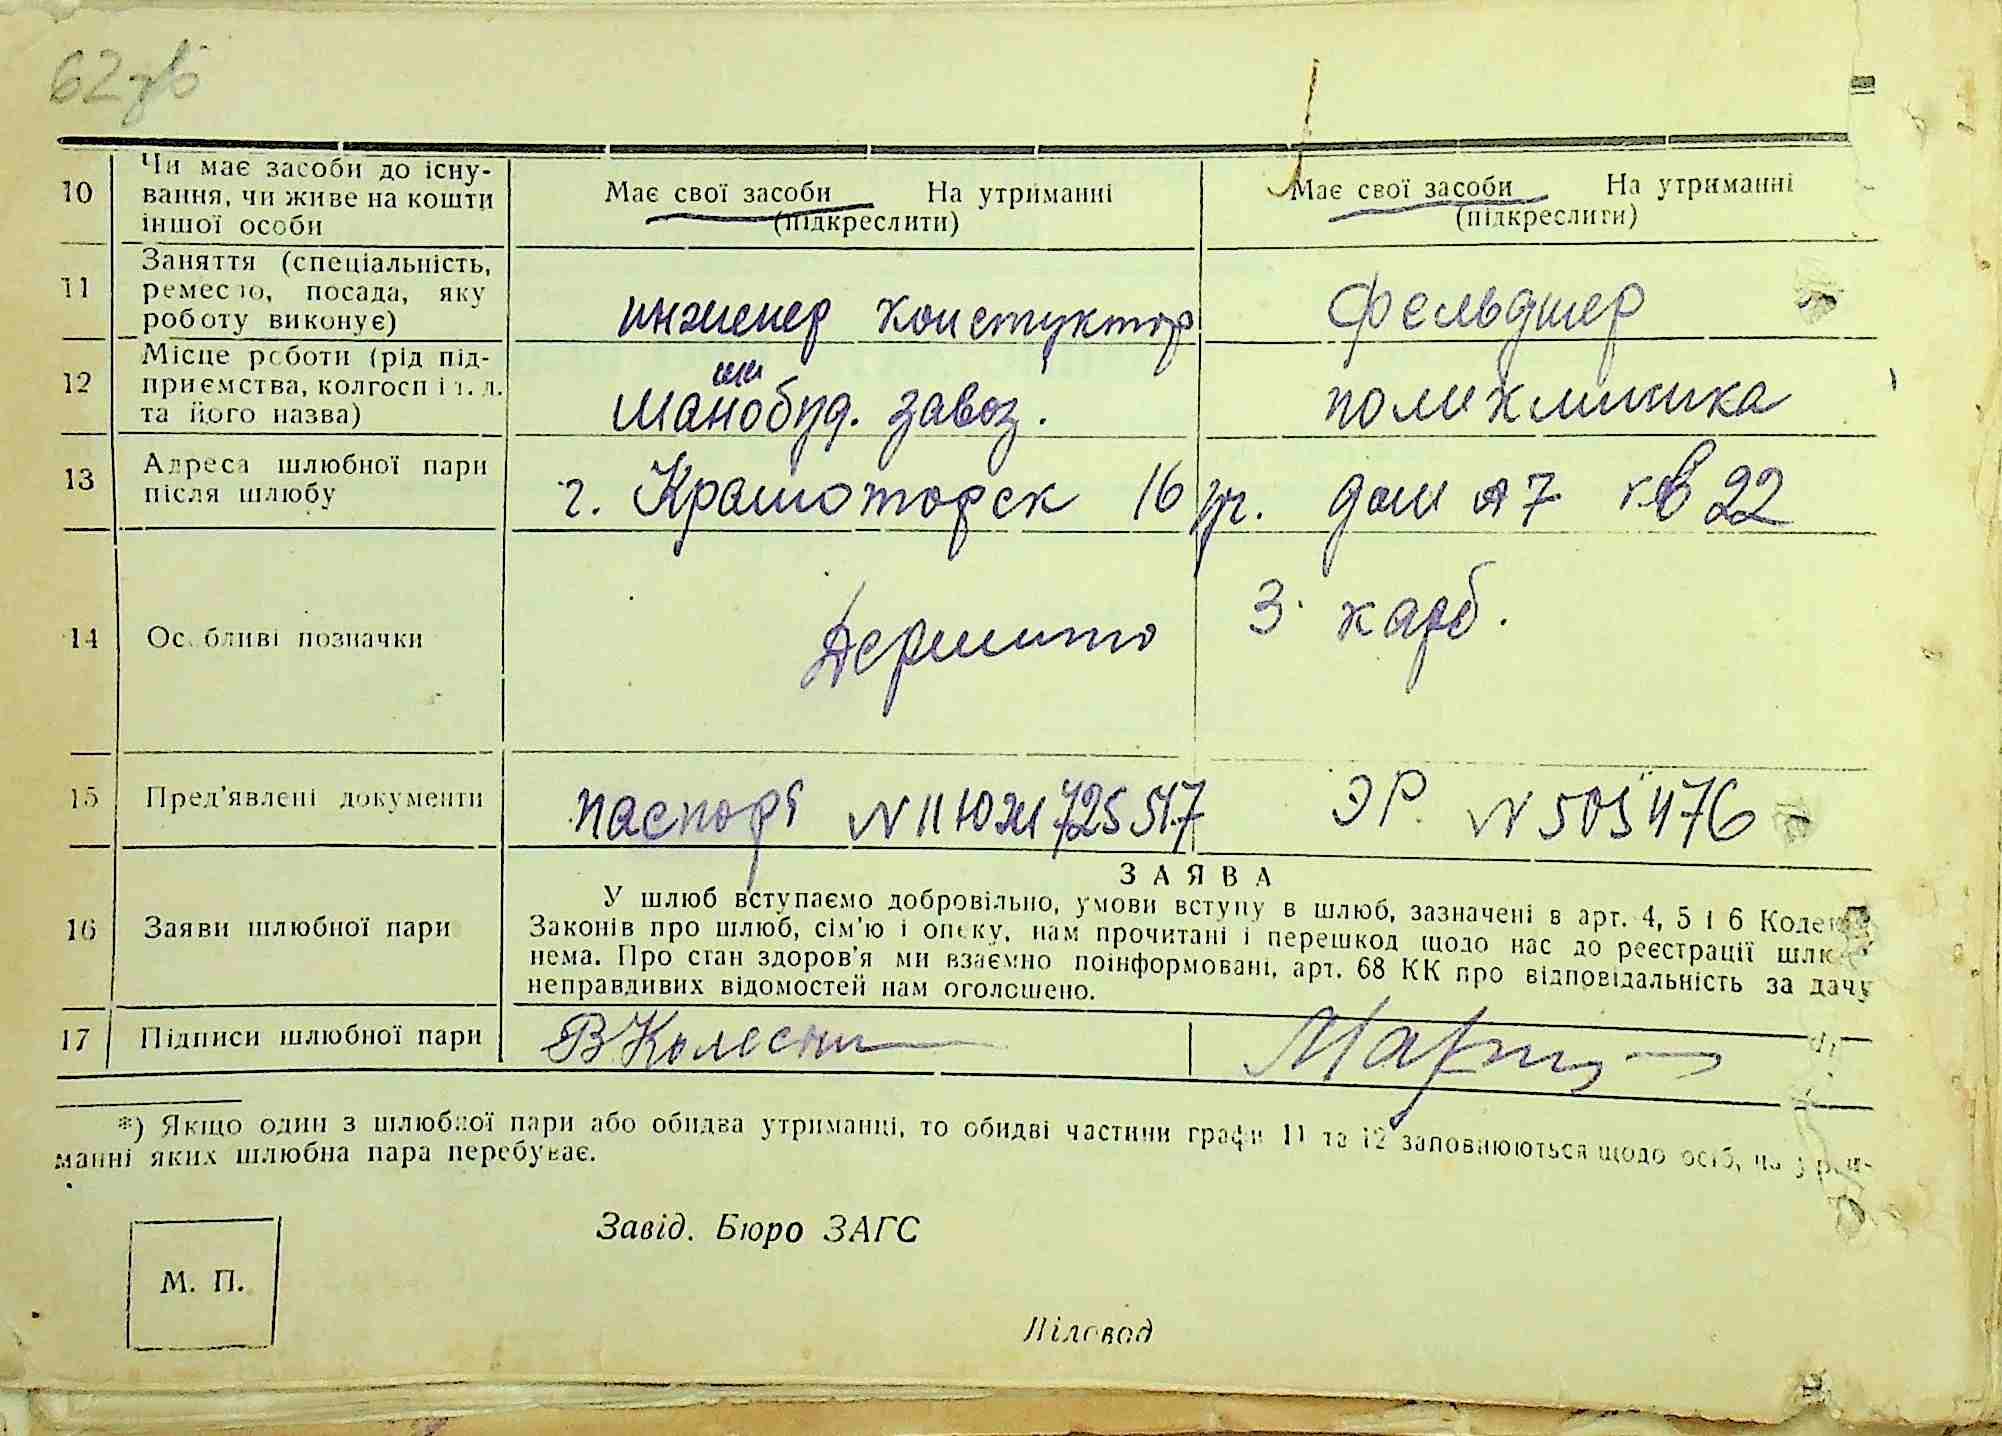 62зв
10 Чи має засоби до існу-
вання, чи живе на кошти
іншої особи
Має свої засоби На утриманні
(підкреслити)
Має свої засоби На утриманні
(підкреслити)
11 Заняття (спеціальність,
ремесло, посада, яку
роботу виконує)
инженер констуктор
фельдшер
12 Місце роботи (рід під-
приємства, колгосп і т. д.
та його назва)
завод.
поликлиника
13 Адреса шлюбної пари
після шлюбу
г. Краматорск 16 дом 7 кв 22
14 Особливі позначки
Держмито 3 карб.
15 Пред'явлені документи
паспорт N 725517
ЭР. N 505476
16 Заяви шлюбної пари
ЗАЯВА
У шлюб вступаємо добровільно, умови вступу в шлюб, зазначені в арт. 4, 5 і 6
Законів про шлюб, сім'ю і опеку, нам прочитані і перешкод щодо нас до реєстрації
нема. Про стан здоров'я ми взаємно поінформовані, арт. 68 КК про відповідальність за дачу
неправдивих відомостей нам оголошено.
17 Підписи шлюбної пари
В Колесни
*) Якщо один з шлюбної пари або обидва утриманці, то обидві частини графи 11 та 12 заповнюються щодо осіб, на
манні яких шлюбна пара перебуває.
Завід. Бюро ЗАГС
М. П.
Діловод